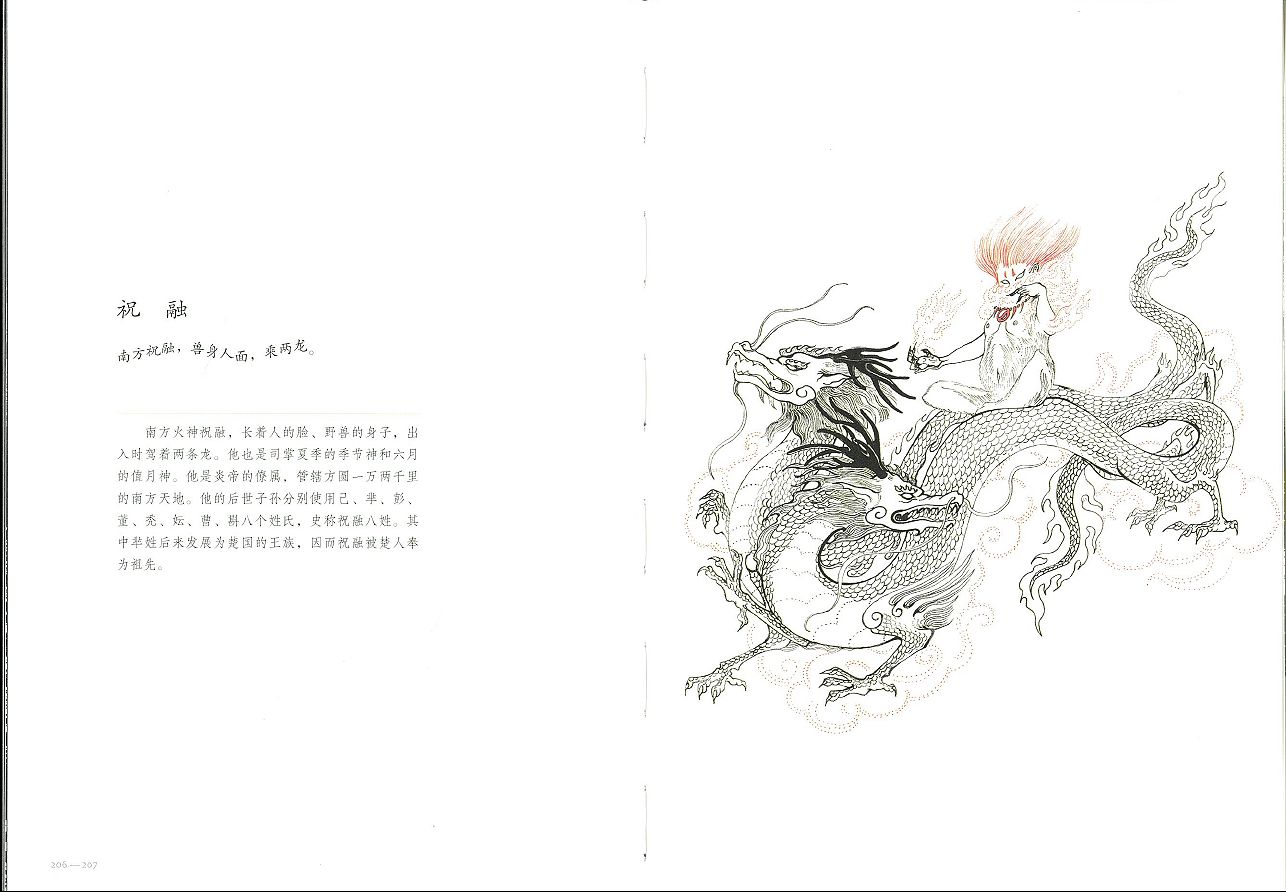 祝 融
南方祝融，兽身人面，乘两龙。
南方火神祝融，长着人的脸、野兽的身子，出
入时驾着两条龙。他也是司掌夏季的季节神和六月
的值月神。他是炎帝的僚属，管辖方圆一万两千里
的南方天地。他的后世子孙分别使用己、芈、彭、
董、秃、妘、曹、斟八个姓氏，史称祝融八姓。其
中芈姓后来发展为楚国的王族，因而祝融被楚人奉
为祖先。
206—207